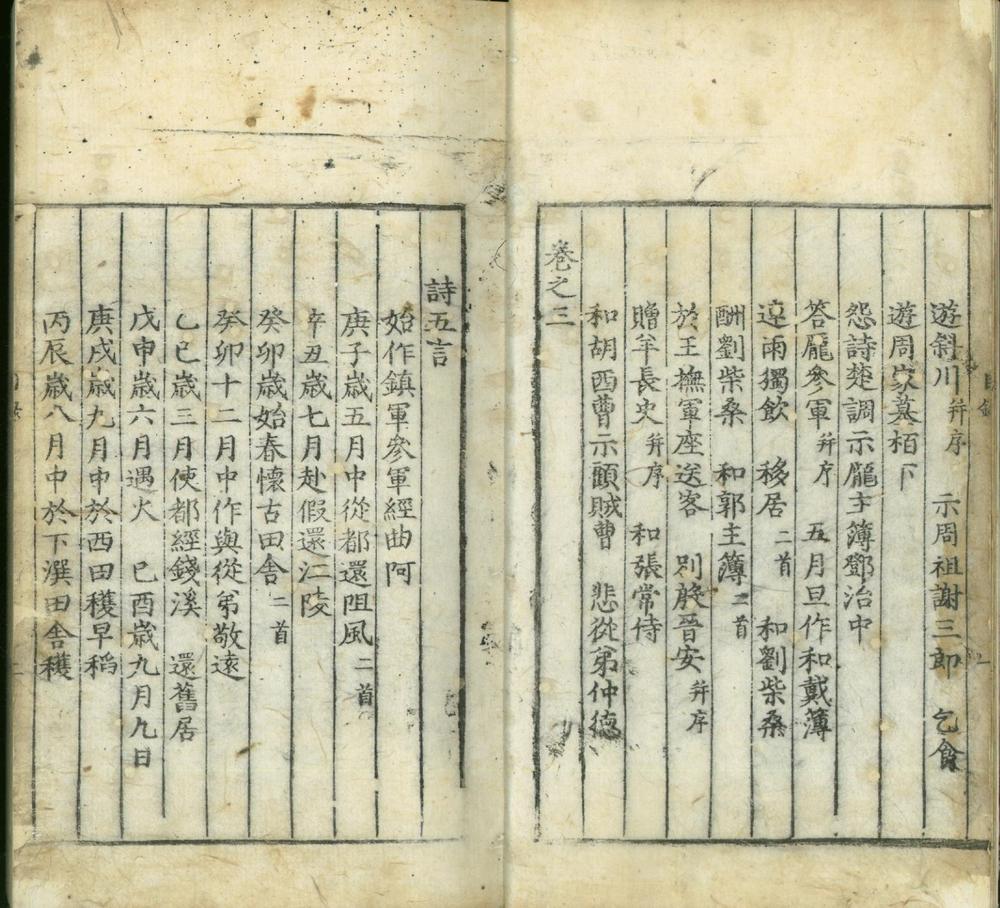 遊斜川 并序 示周祖謝三郎 乞食
遊周家墓栢下
怨詩楚調示龐主簿鄧治中
答龐參軍 并序 五月旦作和戴簿
連雨獨飲 移居 二首 和劉柴桑
酬劉柴桑 和郭主簿 二首
於王撫軍座送客 別殷晉安 并序
贈羊長史 并序 和張常侍
和胡西曹示顧賊曹 悲從弟仲德
卷之三
詩五言
始作鎮軍參軍經曲阿
庚子歲五月中從都還阻風 二首
辛丑歲七月赴假還江陵
癸卯歲始春懷古田舍 二首
癸卯十二月中作與從弟敬遠
乙巳歲三月使都經錢溪 還舊居
戊申歲六月遇火 己酉歲九月九日
庚戌歲九月中於西田穫早稻
丙辰歲八月中於下潠田舍穫